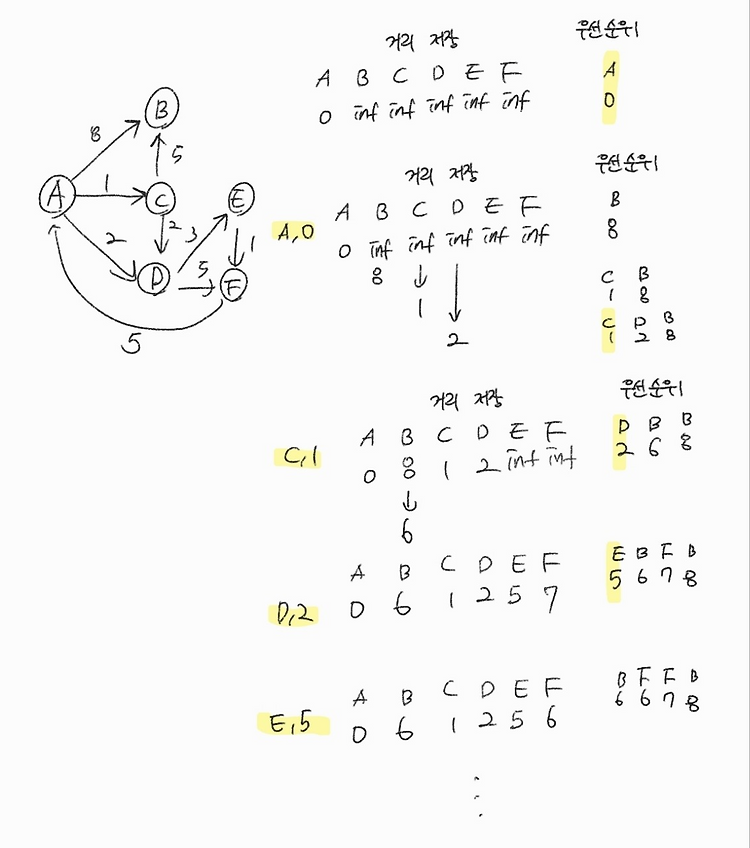 거리 저장 우선순위
A B C D E F A
0 inf inf inf inf inf 0
B
8 5
A 1 C E
2 2 3 1
D 5 F
5
거리 저장 우선순위
A B C D E F B
A,0 0 inf inf inf inf inf 8
8 ↓ ↓ C B
1 1 8
2 C D B
1 2 8
거리 저장 우선순위
A B C D E F D B B
C,1 0 8 1 2 inf inf 2 6 8
↓
6
A B C D E F E B F B
D,2 0 6 1 2 5 7 5 6 7 8
A B C D E F B F F B
E,5 0 6 1 2 5 6 6 6 7 8
⋮